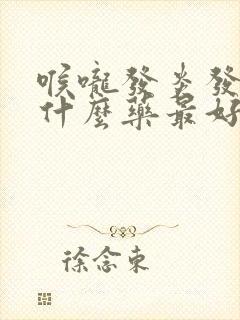 喉嚨發炎發
什麼藥最好
徐念東